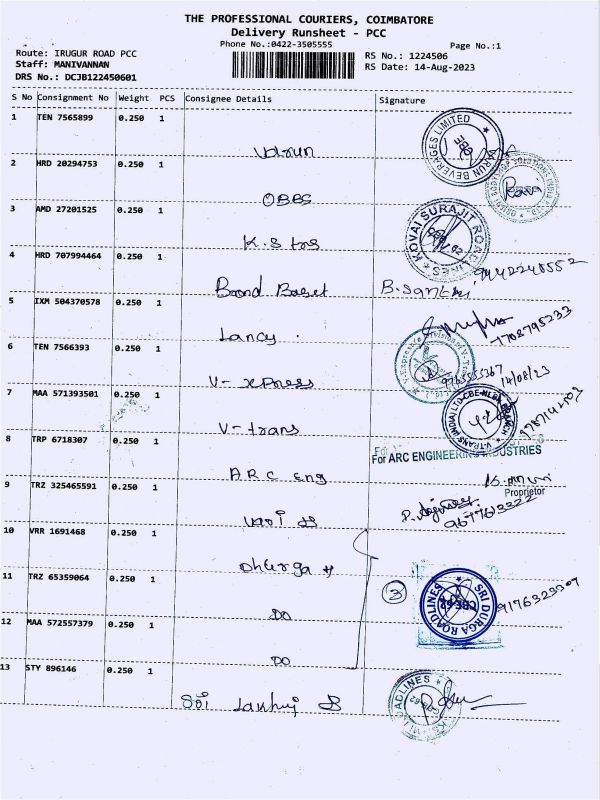 THE PROFESSIONAL COURIERS, COIMBATORE
Delivery Runsheet - PCC
Phone No.:0422-3505555
Page No.:1
Route: IRUGUR ROAD PCC
Staff: MANIVANNAN
DRS No.: DCJB122450601
RS No.: 1224506
RS Date: 14-Aug-2023
S No Consignment No Weight PCS Consignee Details Signature
1 TEN 7565899 0.250 1
Varun
VARUN BEVERAGES LIMITED
2 HRD 20294753 0.250 1
OBBS
3 AMD 27201525 0.250 1
K.S trs
KOVAI SURAJIT ROADLINES
4 HRD 707994464 0.250 1
B.Santhi
5 IXM 504370578 0.250 1
Lancy
6 TEN 7566393 0.250 1
V-xpress
14/08/23
7 MAA 571393501 0.250 1
V-trans
V-TRANS (INDIA) LTD
8 TRP 6718307 0.250 1
ARC Eng
For ARC ENGINEERING INDUSTRIES
Proprietor
9 TRZ 325465591 0.250 1
10 VRR 1691468 0.250 1
Dhurga
11 TRZ 65359064 0.250 1
DO
3
SRI DURGA ROADLINES
CBE-62
12 MAA 572557379 0.250 1
DO
13 STY 896146 0.250 1
Sri